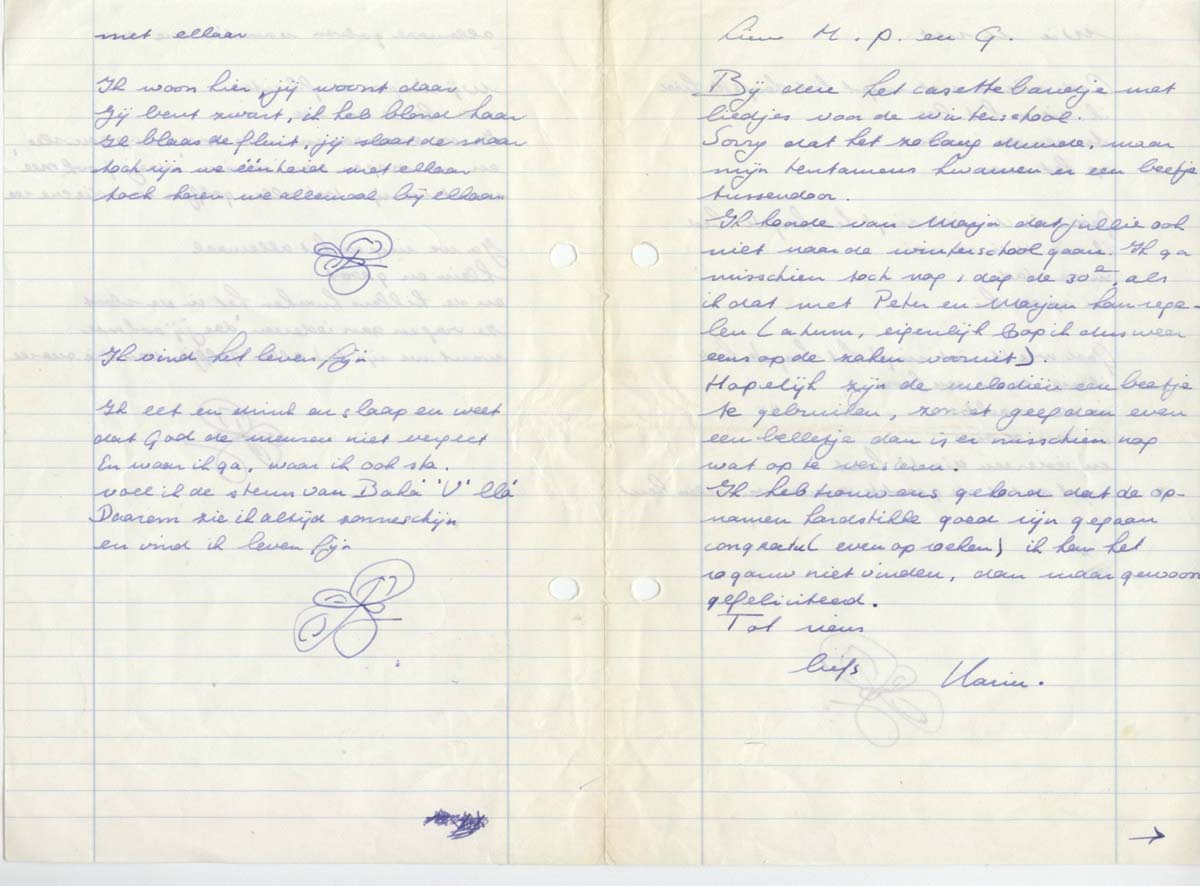 met elkaar
Ik woon hier, jij woont daar
Jij bent zwart, ik heb blond haar
Ik blaas de fluit, jij slaat de snaar
toch zijn we éénheid met elkaar
toch horen we allemaal bij elkaar
Ik vind het leven fijn
Ik eet en drink en slaap en weet
dat God de mensen niet vergeet
En waar ik ga, waar ik ook sta.
voel ik de stem van Bahá''U''llá
Daarom zie ik altijd zonneschijn
en vind ik leven fijn
Lieve M. P. en G.
Bij deze het casettebandje met
liedjes voor de winterschool.
Sorry dat het zo lang duurde, maar
mijn tentamens kwamen er een beetje
tussendoor.
Ik hoorde van Marjan dat jullie ook
niet naar de winterschool gaan. Ik ga
misschien toch nog 1 dag de 30e, als
ik dat met Peter en Marjan kan rege-
len (ahum, eigenlijk loop ik dus weer
eens op de zaken vooruit).
Hopelijk zijn de melodiën een beetje
te gebruiken, zoniet geef dan even
een belletje dan is er misschien nog
wat op te versieren.
Ik heb trouwens gehoord dat de op-
namen hardstikke goed zijn gegaan
congratu( even opzoeken) ik kan het
zo gauw niet vinden, dan maar gewoon
gefeliciteerd.
Tot ziens
liefs Karin.